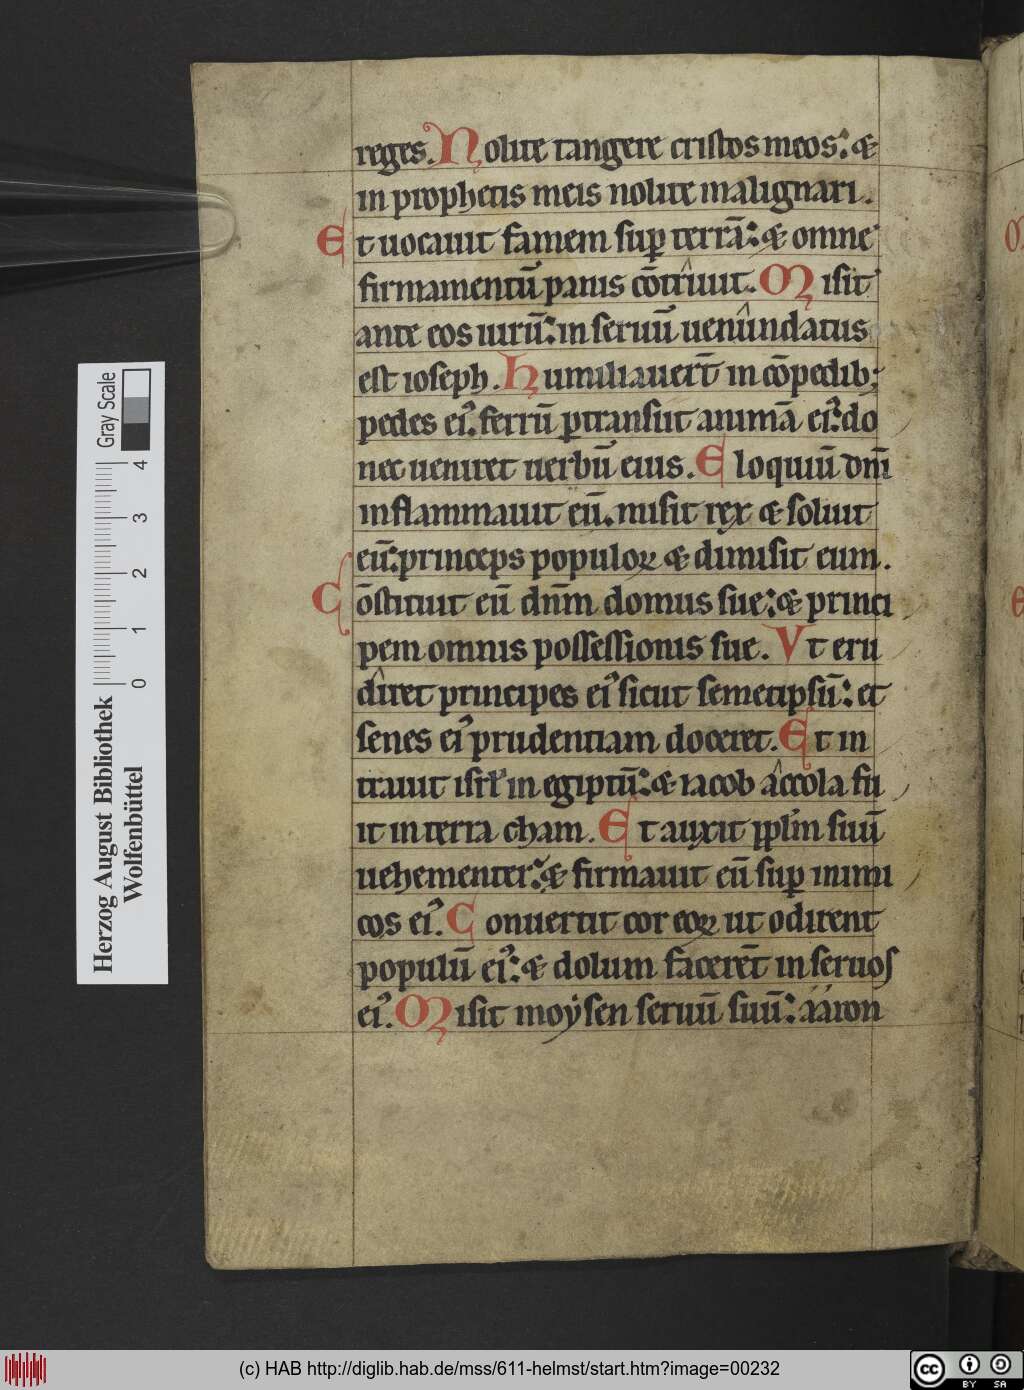 reges. Nolite tangere cristos meos: &
in prophetis meis nolite malignari.
Et uocauit famem sup terrā: & omne
firmamentū panis cōtriuit. Misit
ante eos uirū: in seruū uenundatus
est ioseph. Humiliauer̄t in cōpedib;
pedes ei᾿. ferrū ꝑtransiit animā ei᾿: do
nec ueniret uerbū eius. Eloquiū dn̄i
inflammauit eū. misit rex & soluit
eū: princeps populoꝝ & dimisit eum.
Cōstituit eū dn̄m domus sue: & princi
pem omnis possessionis sue. Vt eru
diret principes ei᾿ sicut semetipsū: et
senes ei᾿ prudentiam doceret. Et in
trauit isrł in egiptū: & iacob accola fu
it in terra cham. Et auxit ppl̄m suū
uehementer: & firmauit eū suꝑ inimi
cos ei᾿. Conuertit cor eoꝝ ut odirent
populū ei᾿: & dolum facerēt in seruos
ei᾿. Misit moẏsen seruū suū: aaron
Herzog August Bibliothek
Wolfenbüttel
0 1 2 3 4
Gray Scale
(c) HAB http://diglib.hab.de/mss/611-helmst/start.htm?image=00232
cc BY SA